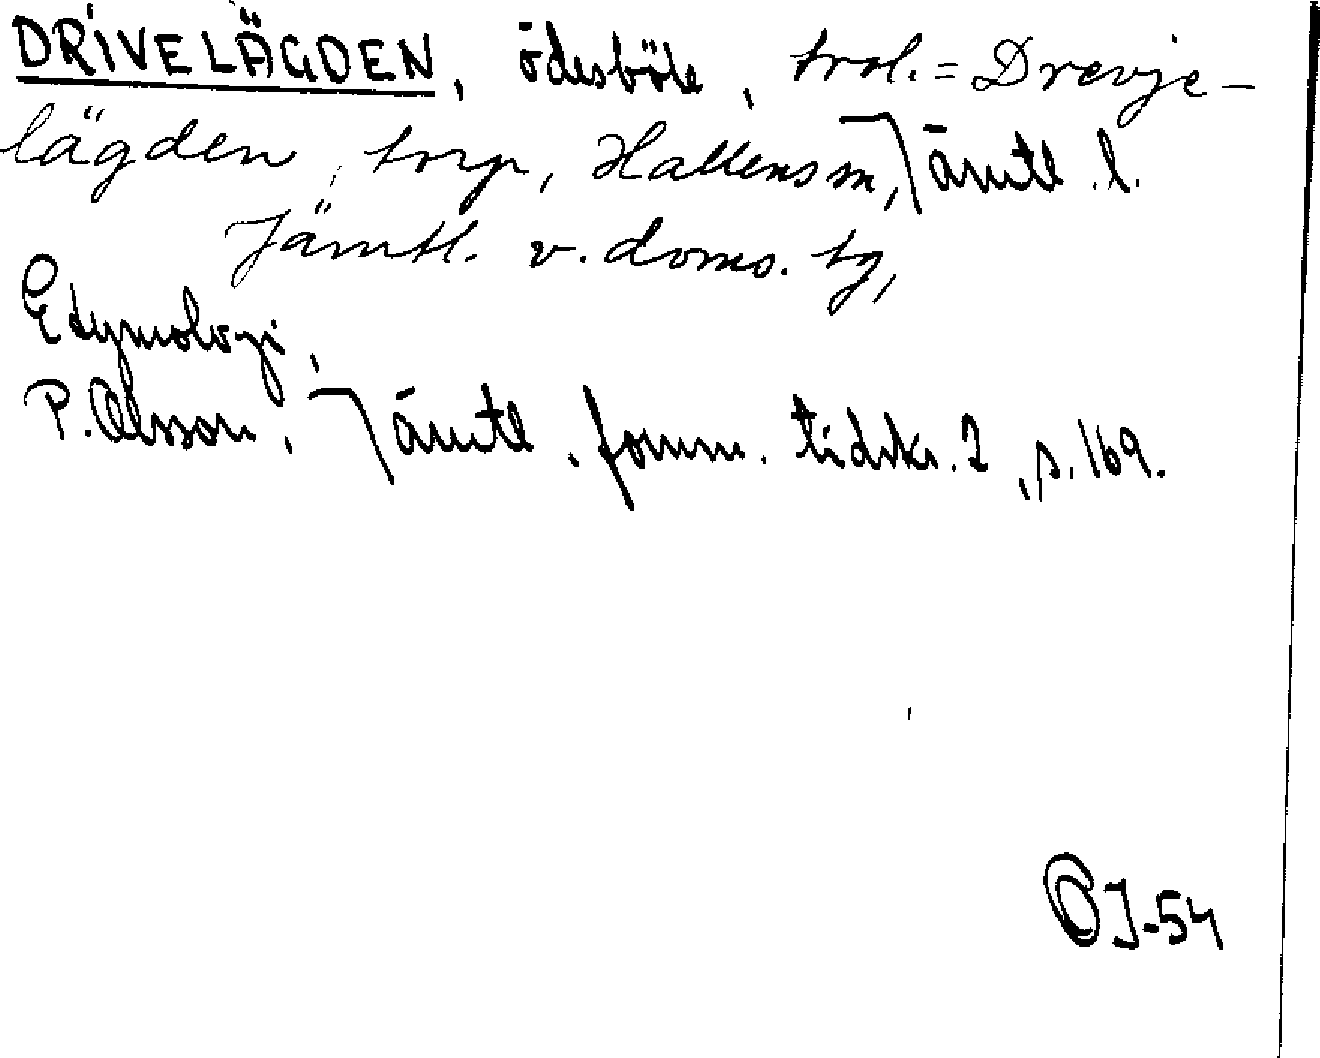 DRIVELÄGDEN, ödesböle, trol. = Drevje-
lägden, torp, Hallens sn, Jämtl. l.
Jämtl. v. doms. tg,
Etymologi,
P. Olsson, Jämtl. fornm. tidskr. 2, s. 169.
OJ-54